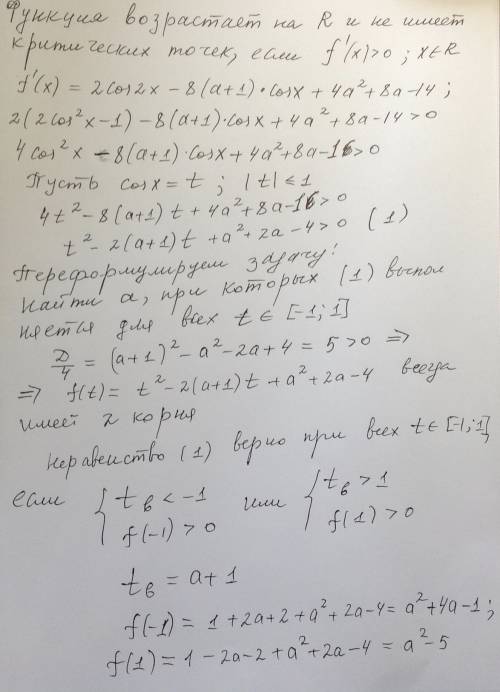 Функция возрастает на R и не имеет
критических точек, если f'(x)>0 ; x∈R
f'(x) = 2cos2x - 8(a+1)·cosx + 4a²+8a-14 ;
2(2cos²x-1) - 8(a+1)·cosx + 4a²+8a-14>0
4cos²x - 8(a+1)·cosx + 4a²+8a-16>0
Пусть cosx = t ; |t| ≤ 1
4t² - 8(a+1)t + 4a²+8a-16>0
t² - 2(a+1)t + a²+2a-4>0 (1)
Переформулируем задачу:
Найти a, при которых (1) выпол
няется для всех t∈[-1;1]
D/4 = (a+1)² - a² - 2a + 4 = 5 > 0 =>
=> f(t) = t² - 2(a+1)t + a²+2a-4 всегда
имеет 2 корня
Неравенство (1) верно при всех t∈[-1;1],
если { tв < -1 или { tв > 1
f(-1) > 0 f(1) > 0
tв = a+1
f(-1) = 1+2a+2+a²+2a-4 = a²+4a-1 ;
f(1) = 1-2a-2+a²+2a-4 = a²-5